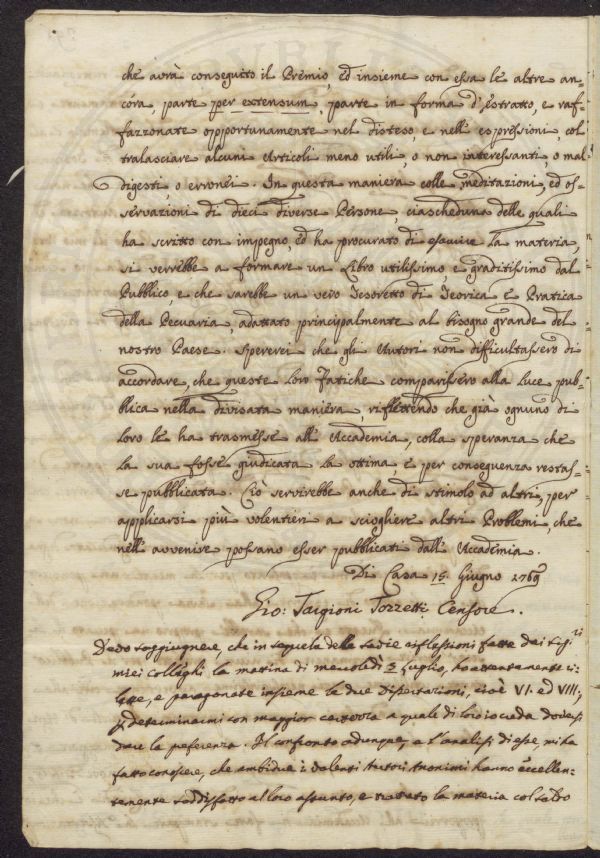 che avrà conseguito il Premio, ed insieme con essa le altre an-
córa, parte per extensum, parte in forma d'estratto, e raf-
fazzonate opportunamente nel disteso, e nell'espressioni, col
tralasciare alcuni Articoli meno utili, o non interessanti, o mal
digesti, o erronei. In questa maniera colle meditazioni, ed os-
servazioni di dieci diverse Persone, ciascheduna delle quali
ha scritto con impegno, ed ha procurato di esaurire la materia,
si verrebbe a formare un Libro utilissimo, e graditissimo dal
Pubblico, e che sarebbe un vero Tesoretto di Teorica e Pratica
della Pecuaria, adattato principalmente al bisogno grande del
nostro Paese. Spererei che gli Autori non difficultassero di
accordare, che queste loro Fatiche comparissero alla luce pub-
blica nella divisata maniera, riflettendo che già ognuno di
loro le ha trasmesse all'Accademia, colla speranza che
la sua fosse giudicata la ottima e per conseguenza restas-
se pubblicata. Ciò servirebbe anche di stimolo ad altri, per
applicarsi più volentieri a sciogliere altri Problemi, che
nell'avvenire possano esser pubblicati dall'Accademia.
Di Casa 15. Giugno 1769
Gio: Targioni Tozzetti Censore.
Devo soggiugnere, che in sequela delle savie riflessioni fatte dai
miei colleghi la mattina di mercoledì 3 Luglio, ho attentamente ri-
lette, e paragonate insieme le due dissertazioni, cioè VI. ed VIII.,
determinarmi con maggior certezza a quale di loro io creda doversi
dare la preferenza. Il confronto adunque, e l'analisi di esse, mi ha
fatto conoscere, che ambidue i valenti Autori Anonimi hanno eccellen-
temente soddisfatto al loro assunto, e trattato la materia col